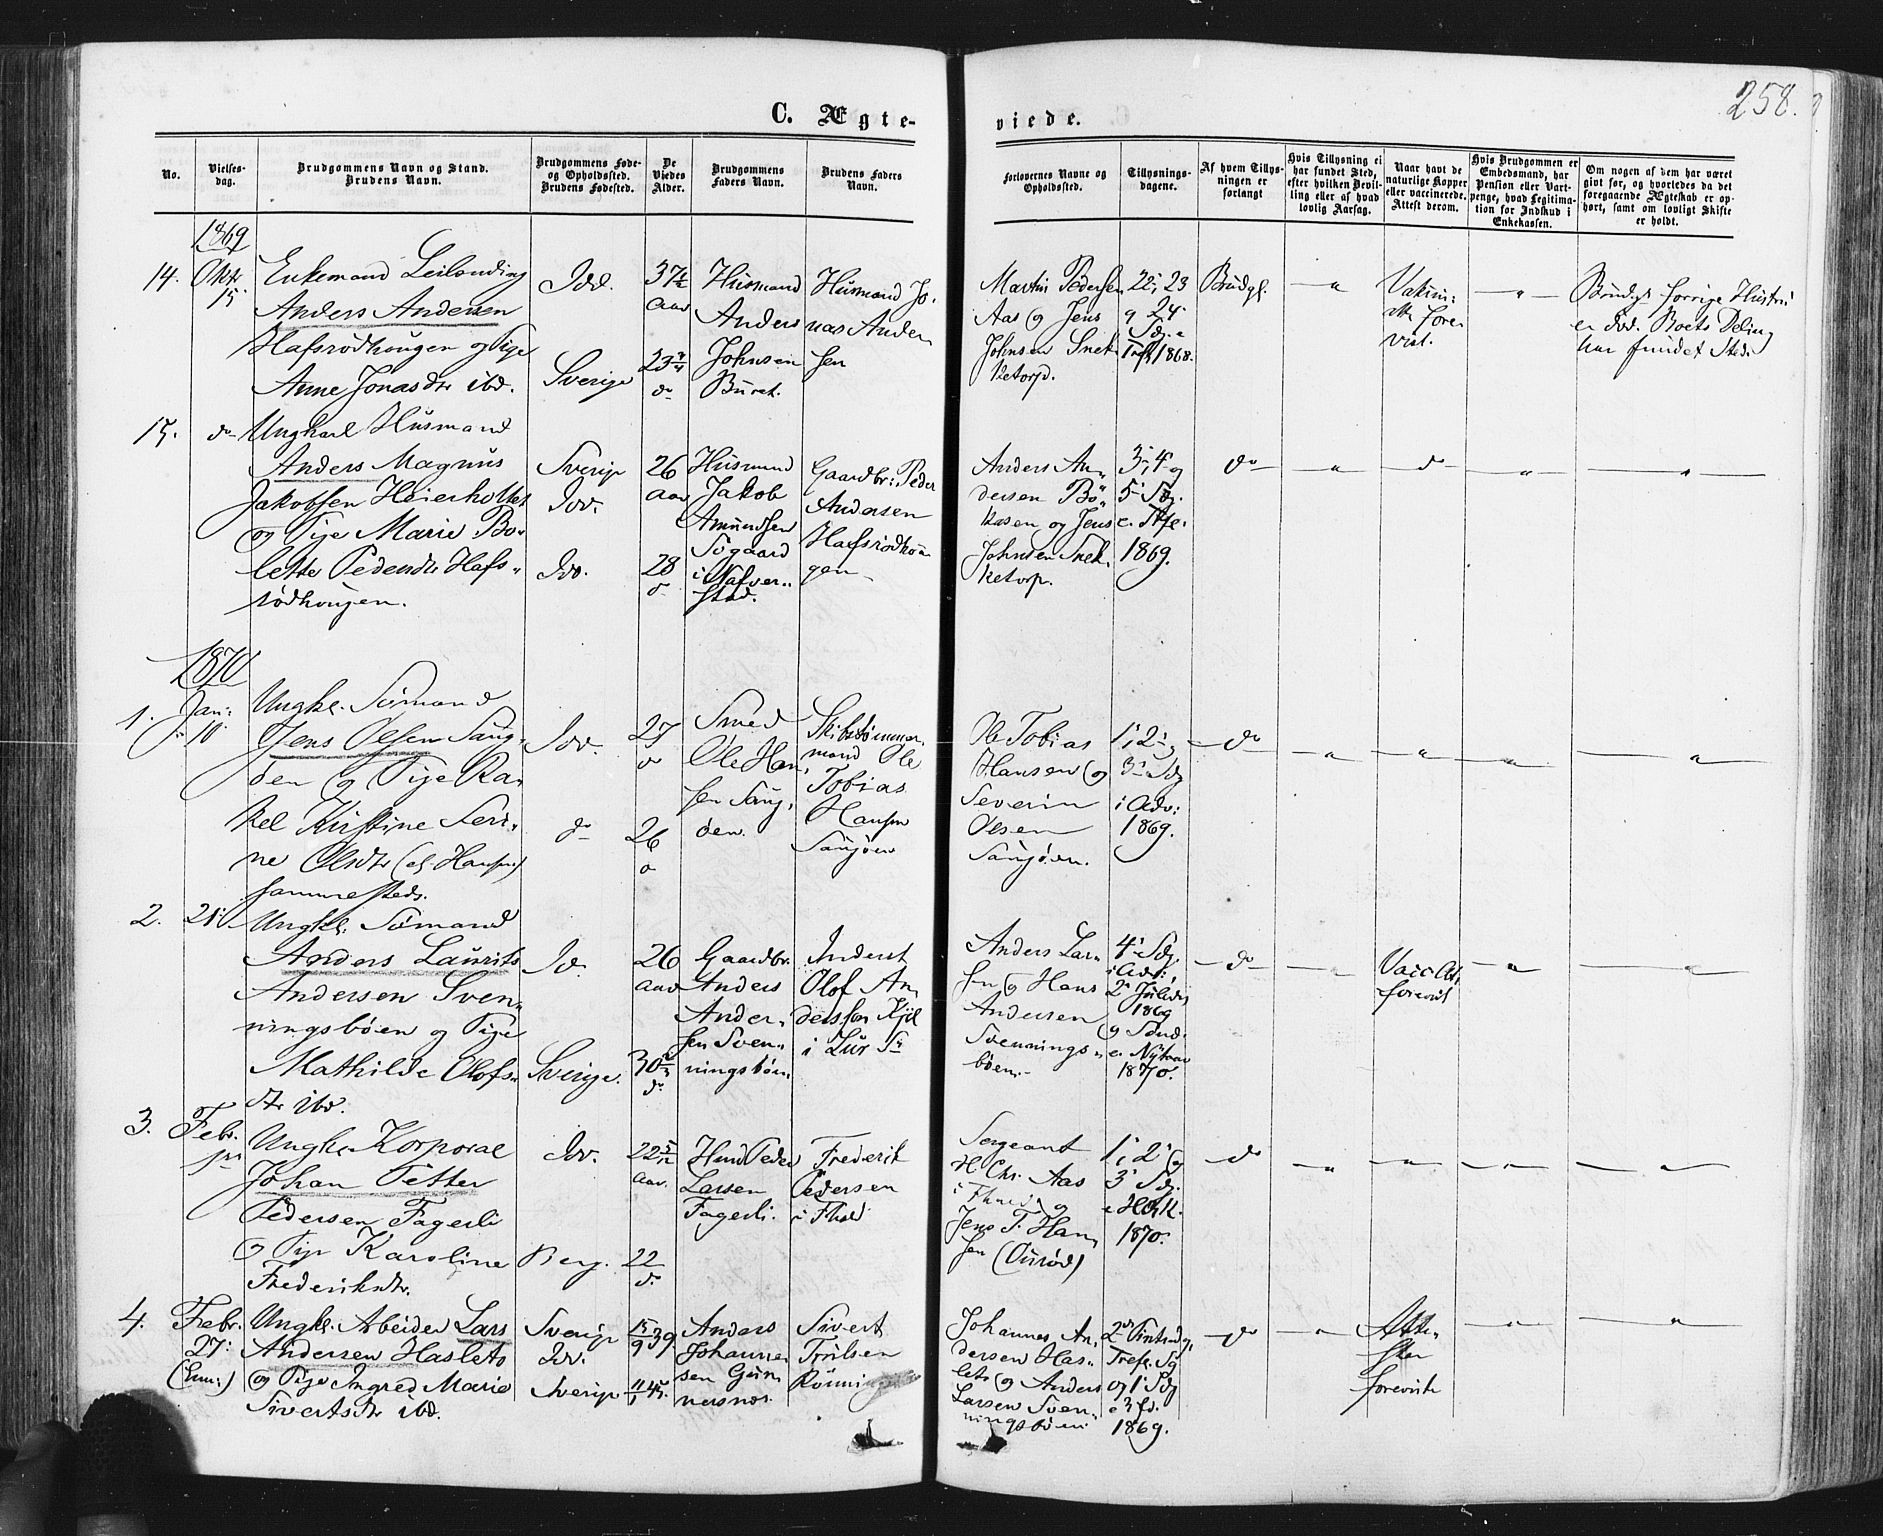 258.
C. Ægte-
viede.
No.
Vielses-
dag.
Brudgommens Navn og Stand.
Brudens Navn.
Brudgommens Føde-
og Opholdssted.
Brudens Fødested.
De
Viedes
Alder.
Brudgommens
Faders Navn.
Brudens Faders
Navn.
Forlovernes Navne og
Opholdssted.
Tillysnings-
dagene.
Af hvem Tillys-
ningen er
forlangt
Hvis Tillysning ei
har fundet Sted,
efter hvilken Bevil-
ling eller af hvad
lovlig Aarsag.
Naar havt de
naturlige Kopper
eller vaccinerede.
Attest derom.
Hvis Brudgommen er
Embedsmand, har
Pension eller Vart-
penge, hvad Legitima-
tion for Indskud i
Enkekassen.
Om nogen af dem har været
givt før, og hvorledes da det
foregaaende Ægteskab er op-
hørt, samt om lovligt Skifte
er holdt.
1869
14.
Oktr
15.
Enkemand Leilending
Anders Andersen
Hafsrødhougen og Pige
Anne Jonasdr ibd.
Idd.
Sverige
37½
Aar
23¾
do
Husmand
Anders
Johnsen
Buret.
Husmand Jo-
nas Ander
sen
Martin Pedersen
Aas og Jens
Johnsen Snek
ketorp.
22, 23
og 24
Sdg. e.
Tref. 1868.
Brudg.
"
Vakcin:
Att. fore
vist.
"
Brudgs forrige Hustru
er död. Boets Deling
har fundet Sted.
15.
do
Ungkarl Husmand
Anders Magnus
Jakobsen Heierholtet
og Pige Marie Bo-
lette Pedersdr Hafs-
rödhougen.
Sverige
Idd.
Idd.
26
Aar
28
do
Husmand
Jakob
Amundsen
Sögaard
i Nafver-
stad.
Gaardbr: Peder
Andersen
Hafsrödhou-
gen
Anders An-
dersen Bö-
kasen og Jens
Johnsen Snek-
ketorp.
3, 4 og
5 Sdg.
e. Tref.
1869.
do
"
do
"
"
1870
1.
Jan:
10.
Ungkl. Sömand
Jens Olsen Saug-
öen og Pige Ra-
kel Kirstine Seri-
ne Olsdr (el. Hansen)
sammesteds.
Idd.
do
27
do
26
do
Smed
Ole Han-
sen Saug-
öen.
Skibstömmer-
mand Ole
Tobias
Hansen
Saugöen
Ole Tobias
Hansen og
Severin
Olsen
Saugöen.
1, 2 og
3 Sdg
i Adv:
1869.
do
"
"
"
"
2.
21.
Ungkl. Sömand
Anders Laurits
Andersen Sven-
ningsböen og Pige
Mathilde Olofs-
dr ibd.
Id.
Sverige.
26
Aar
30
do
Gaardbr.
Anders
Ander-
sen Sven-
ningsböen
Anderst
Olof An
derssen Kjil
i Lur
Anders Lar-
sen og Hans
Andersen
Svennings-
böen.
4 Sdg.
i Adv:,
2 Juledg
1869
og Sönd.
e. Nytaar
1870.
do
"
Vacc At.
forevist
"
"
3.
Febr.
Ungkl. Korporal
Johan Petter
Pedersen Fagerli
og Pige Karoline
Frederiksdr.
Idd.
Berg.
22
Aar.
22
do
Peder
Larsen
Fagerli.
Frederik
Pedersen
i Fhald
Sergeant
H. Chr. Aas
i Fhald og
Jens P. Han
sen
1, 2 og
3 Sdg.
e H3K.
1870.
do
"
"
"
"
4.
Febr.
27.
Ungkl. Arbeider Lars
Andersen Haslets
og Pige Ingred Marie
Sivertsdr ibd.
Sverige
Idd.
Sverige
15/9 39
11/1 45
Anders
Johanne
sen Gun
nersnæs.
Sivert
Trulsen
Rönning
Johannes An-
dersen Has-
lets og Anders
Larsen Sven-
ningsböen
Tref. Sg
og 1 Sdg
1869.
do
"
Atte-
ster
foreviste
"
"